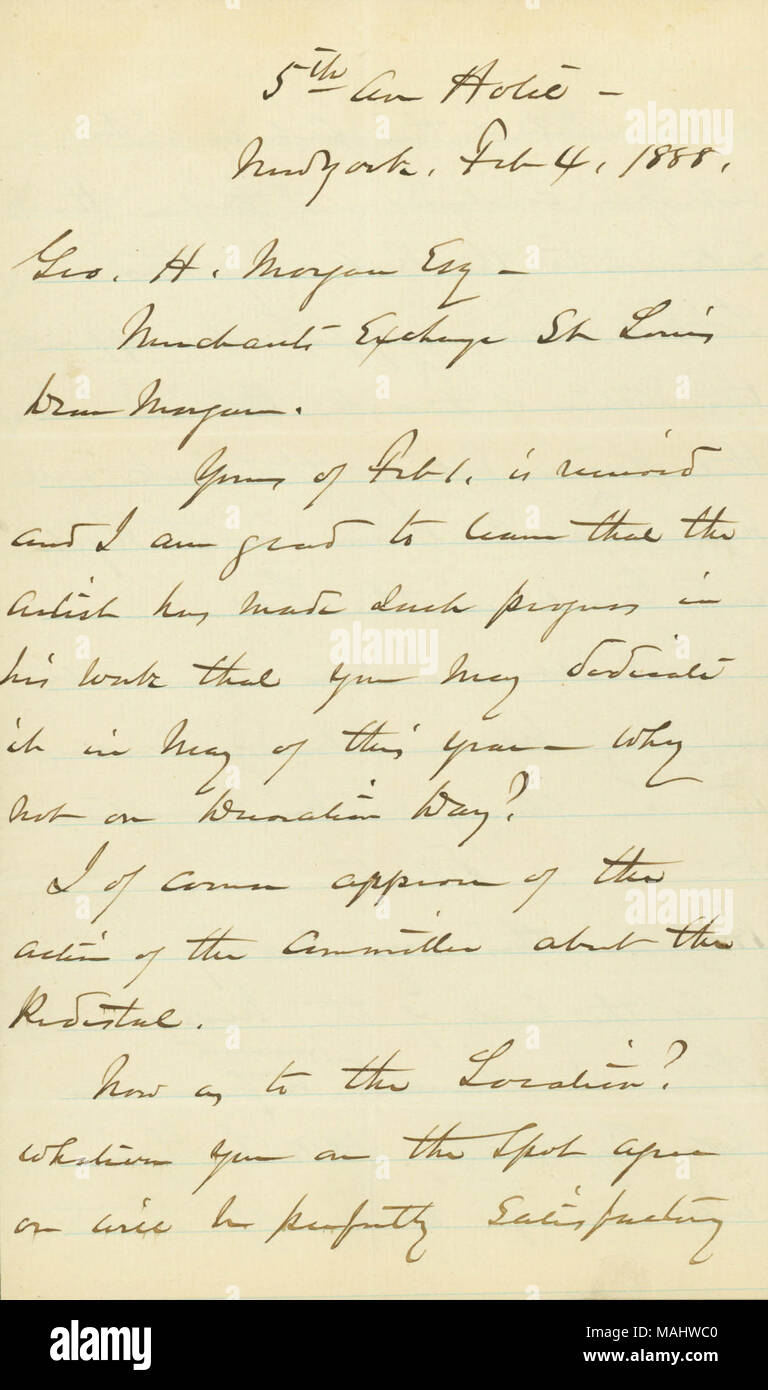 5th Av Hotel -
New York, Feb 4, 1888.
Geo. H. Morgan Esq -
Merchants Exchange St Louis
Dear Morgan.
Yours of Feb 1. is received
and I am glad to learn that the
artist has made such progress in
his work that you may dedicate
it in May of this year - Why
not on Decoration Day?
I of course approve of the
action of the Committee about the
Pedestal.
Now as to the Location?
Whatever you on the Spot agree
on will be perfectly Satisfactory
alamy
a
alamy stock photo
MAHWC0
www.alamy.com